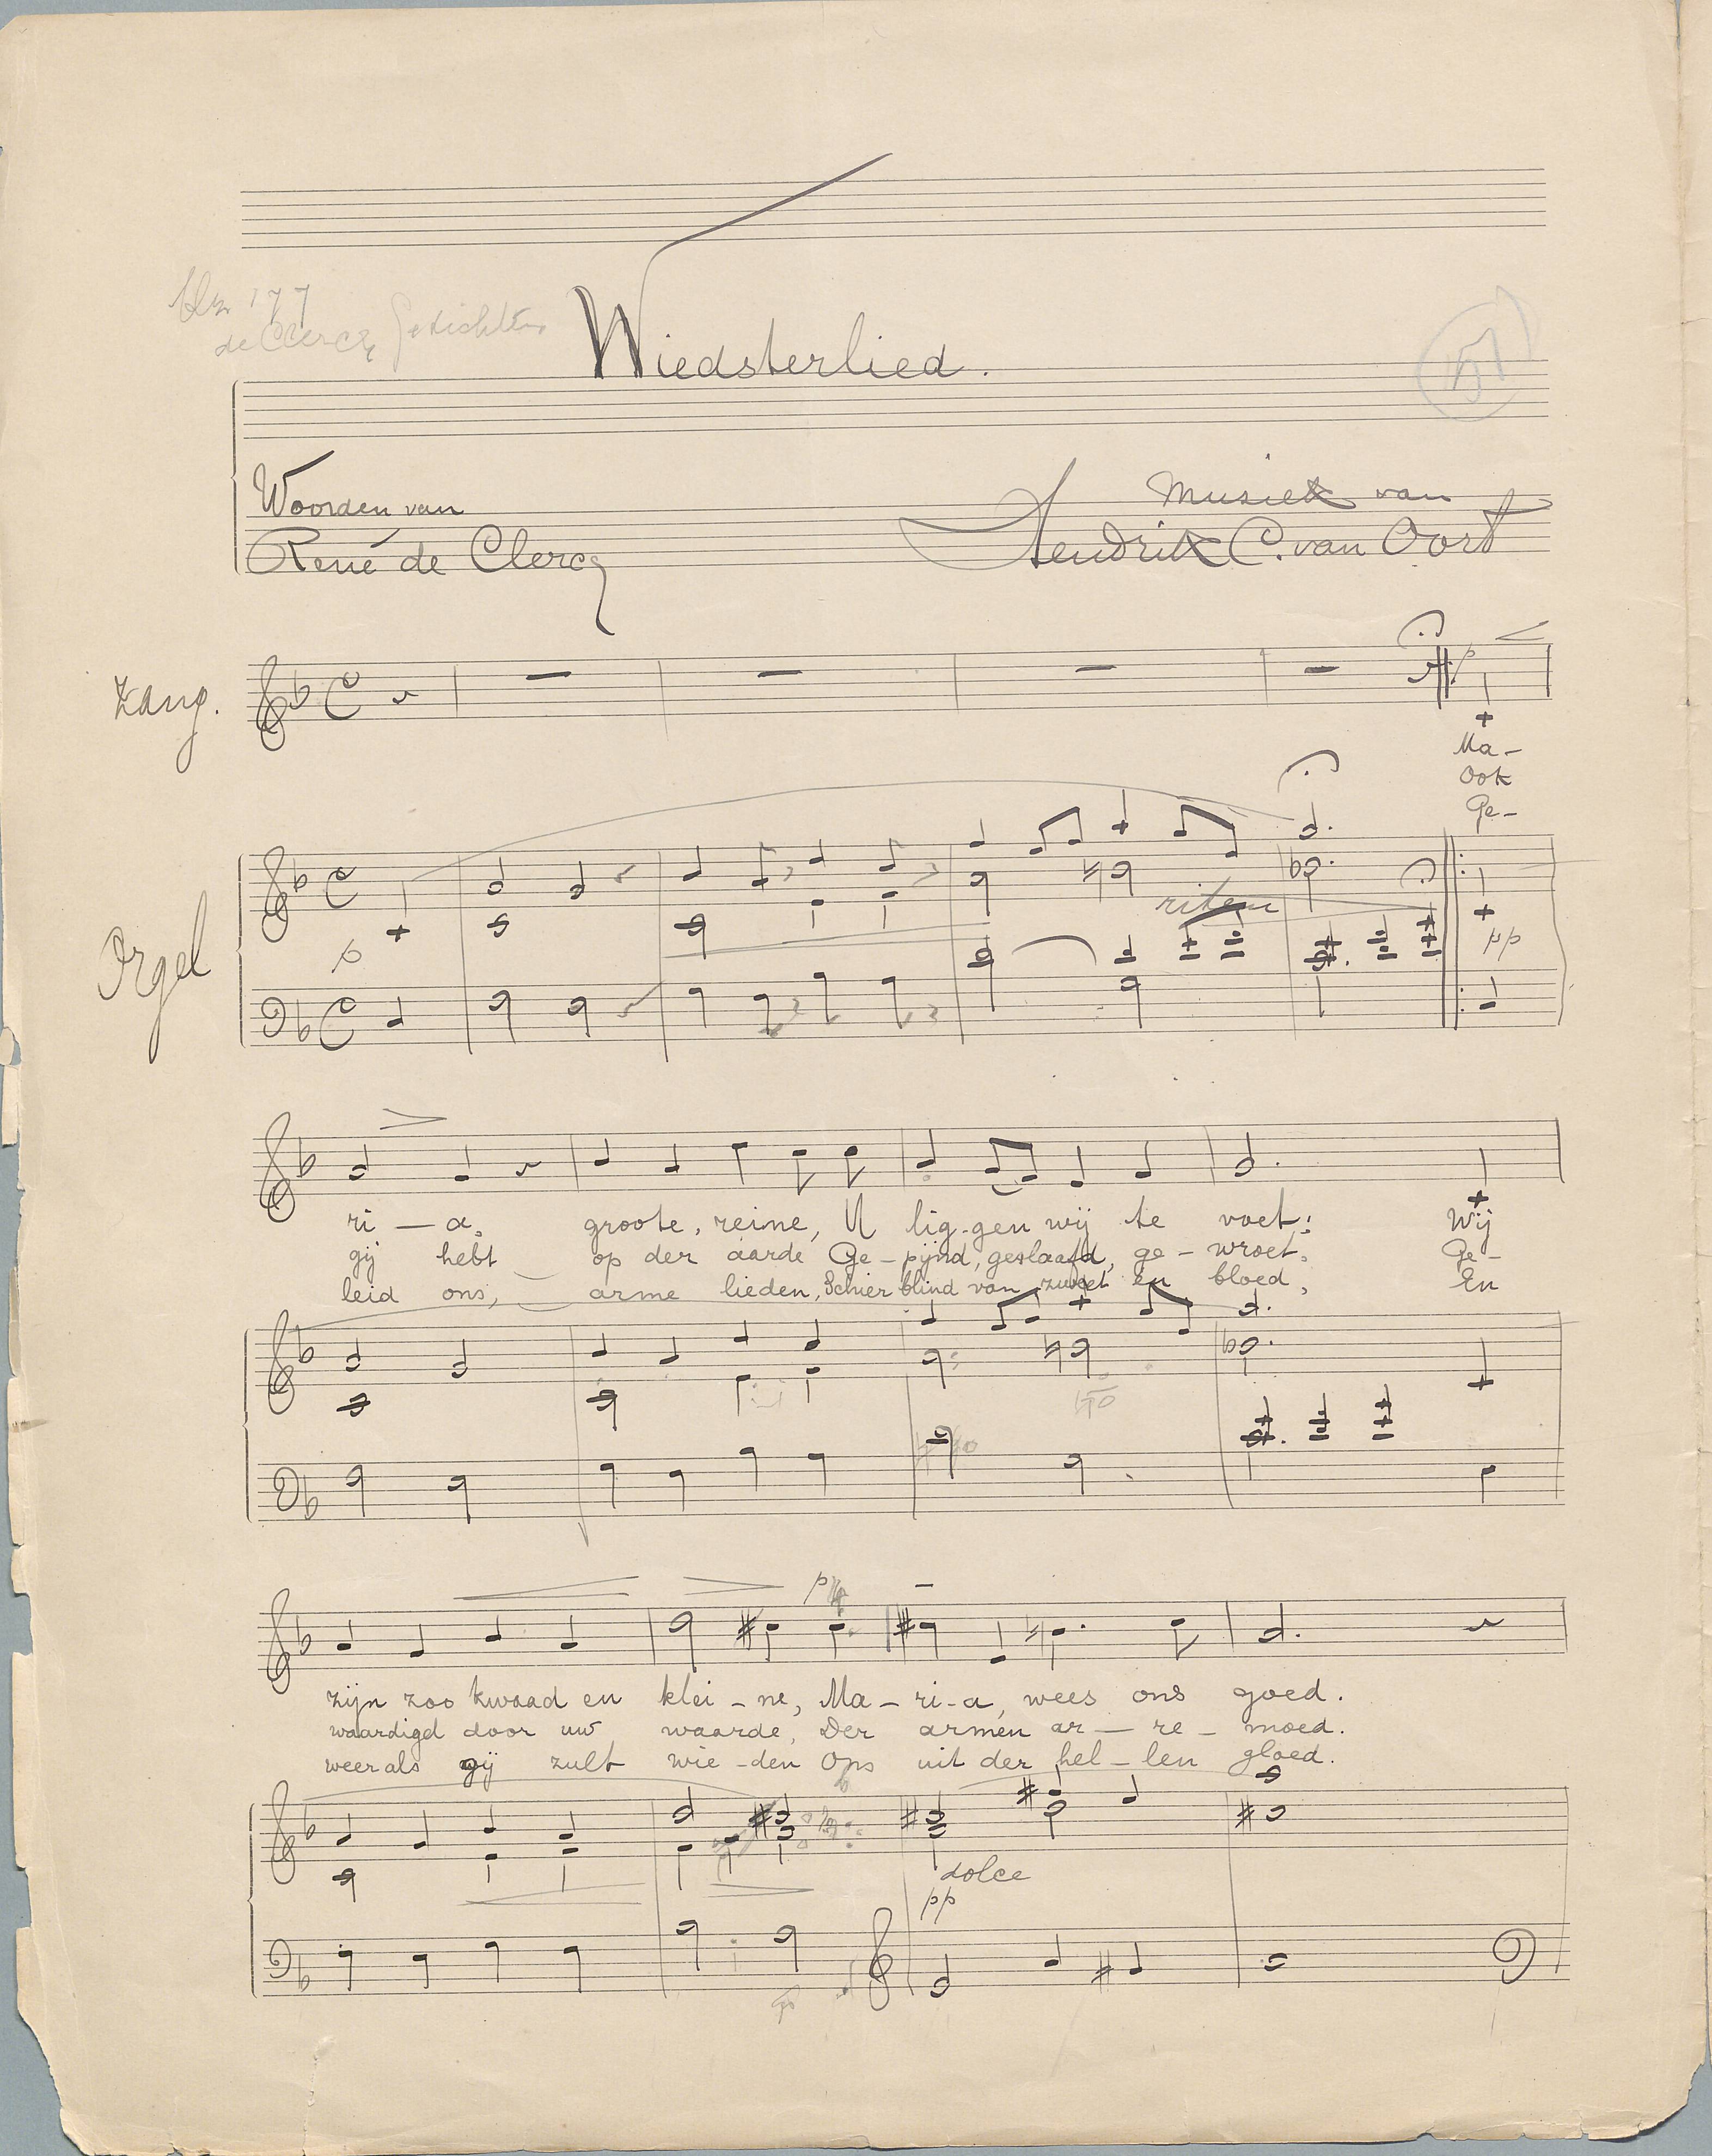 Blz 177
de Clercq Gedichten
Wiedsterlied.
Woorden van
René de Clercq
Muziek van
Hendrik C. van Oort
Zang.
p
Ma-
Ook
Ge-
Orgel
p
ritem
pp
ri — a, groote, reine, U lig-gen wij te voet; Wij
gij hebt op der aarde Ge-pijnd, geslaafd, ge-wroet, Ge-
leid ons, arme lieden, Schier blind van zweet en bloed, En
p
zijn zoo kwaad en klei-ne, Ma-ri-a, wees ons goed.
waardigd door uw waarde, Der armen ar-re-moed.
weer als gij zult wie-den Ons uit der hel-len gloed.
dolce
pp